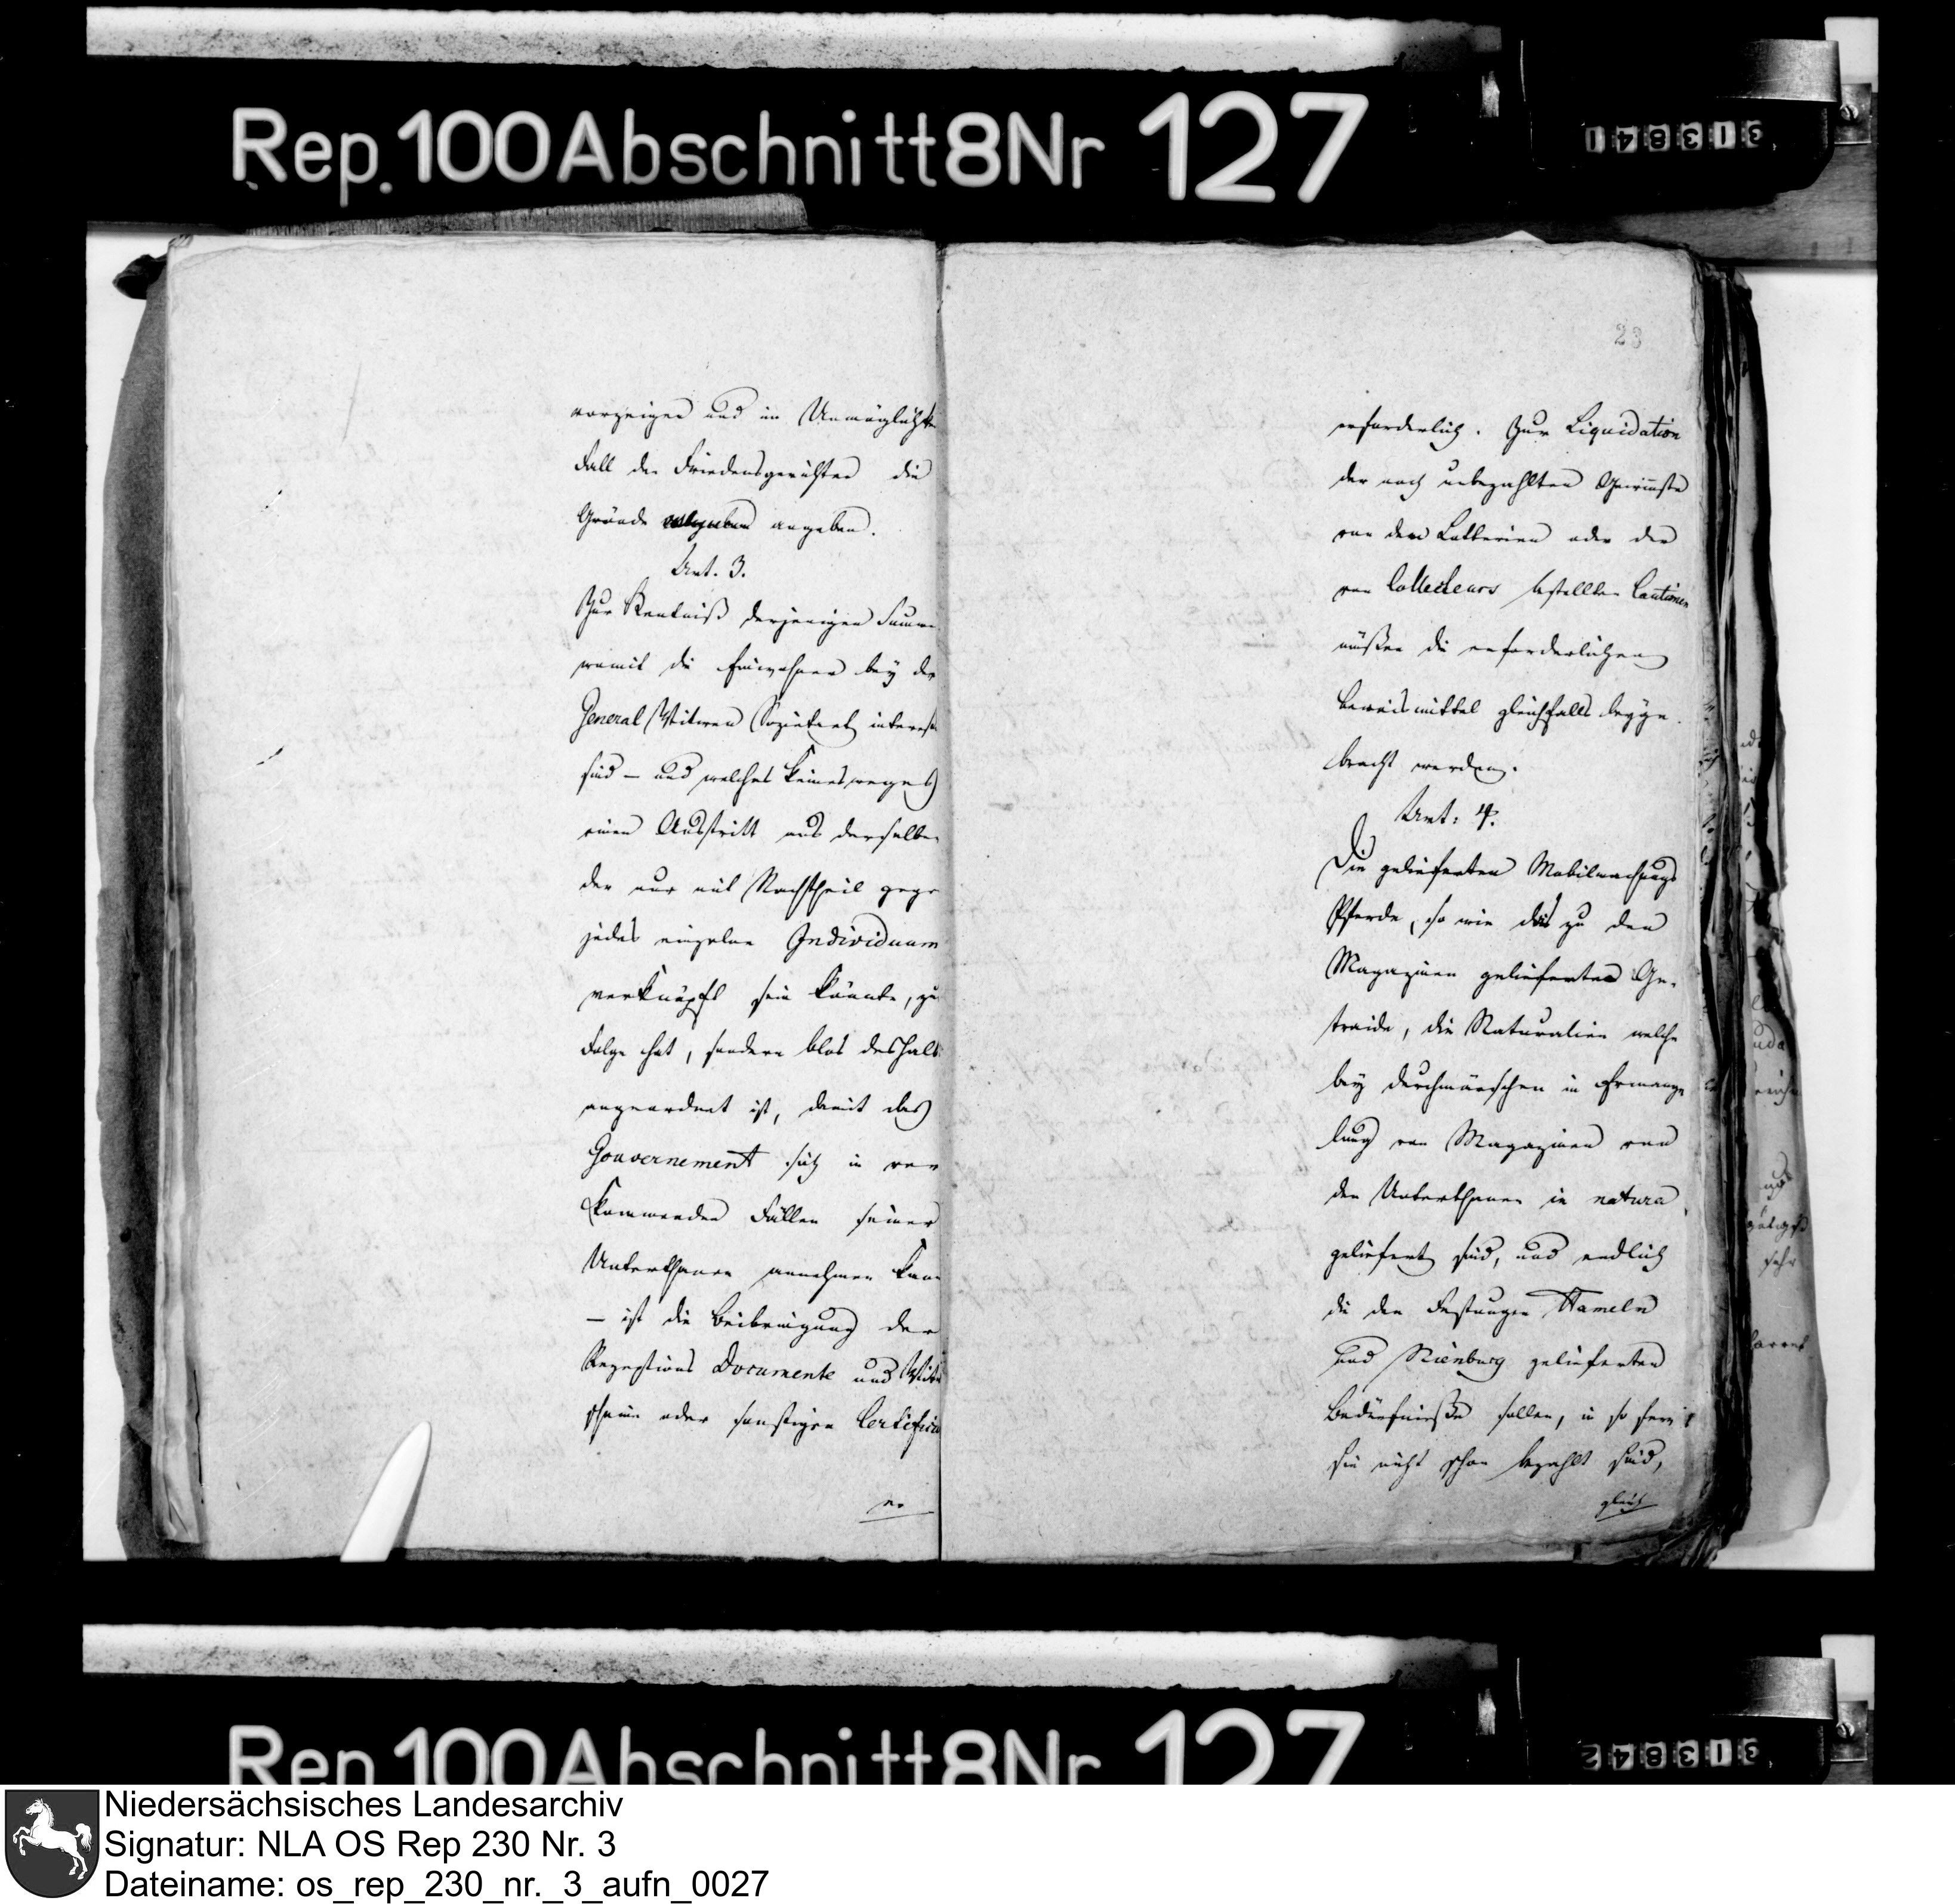 Rep. 100 Abschnitt 8 Nr 127
313841
vorzeigen und im Unmöglichkeits
Fall den Friedensgerichten die
Gründe angeben.
Art. 3.
Zur Kentniß derjenigen Summe
womit die Einwohner bey der
General Witwen Sozietaet interess
sind – und welches keinesweges
einen Austritt aus derselben
der nur mit Nachtheil gegen
jedes einzelne Individuum
verknüpft sein könnte, zur
Folge hat, sondern blos deshalb
angeordnet ist, damit das
Gouvernement sich in vor
kommenden Fällen seiner
Unterthanen annehmen kann
– ist die Beibringung der
Rezeptions Documente und
scheine oder sonstigen Certifica
23
erforderlich. Zur Liquidation
der noch unbezahlten Gewinnste
von den Lotterien oder der
von Collecteurs bestellten Cautionen
müßen die erforderlichen
Beweismittel gleichfalls beyge-
bracht werden.
Art: 4.
Die gelieferten Mobilmachungs
Pferde, so wie das zu den
Magazinen gelieferte Ge-
traide, die Naturalien welche
bey Durchmärschen in Ermange
lung von Magazinen von
den Unterthanen in natura
geliefert sind, und endlich
die den Festungen Hameln
und Nienburg gelieferten
Bedürfniße sollen, in so fern
sie nicht schon bezahlt sind,
gleich
Rep. 100 Abschnitt 8 Nr 127
313842
Niedersächsisches Landesarchiv
Signatur: NLA OS Rep 230 Nr. 3
Dateiname: os_rep_230_nr._3_aufn_0027